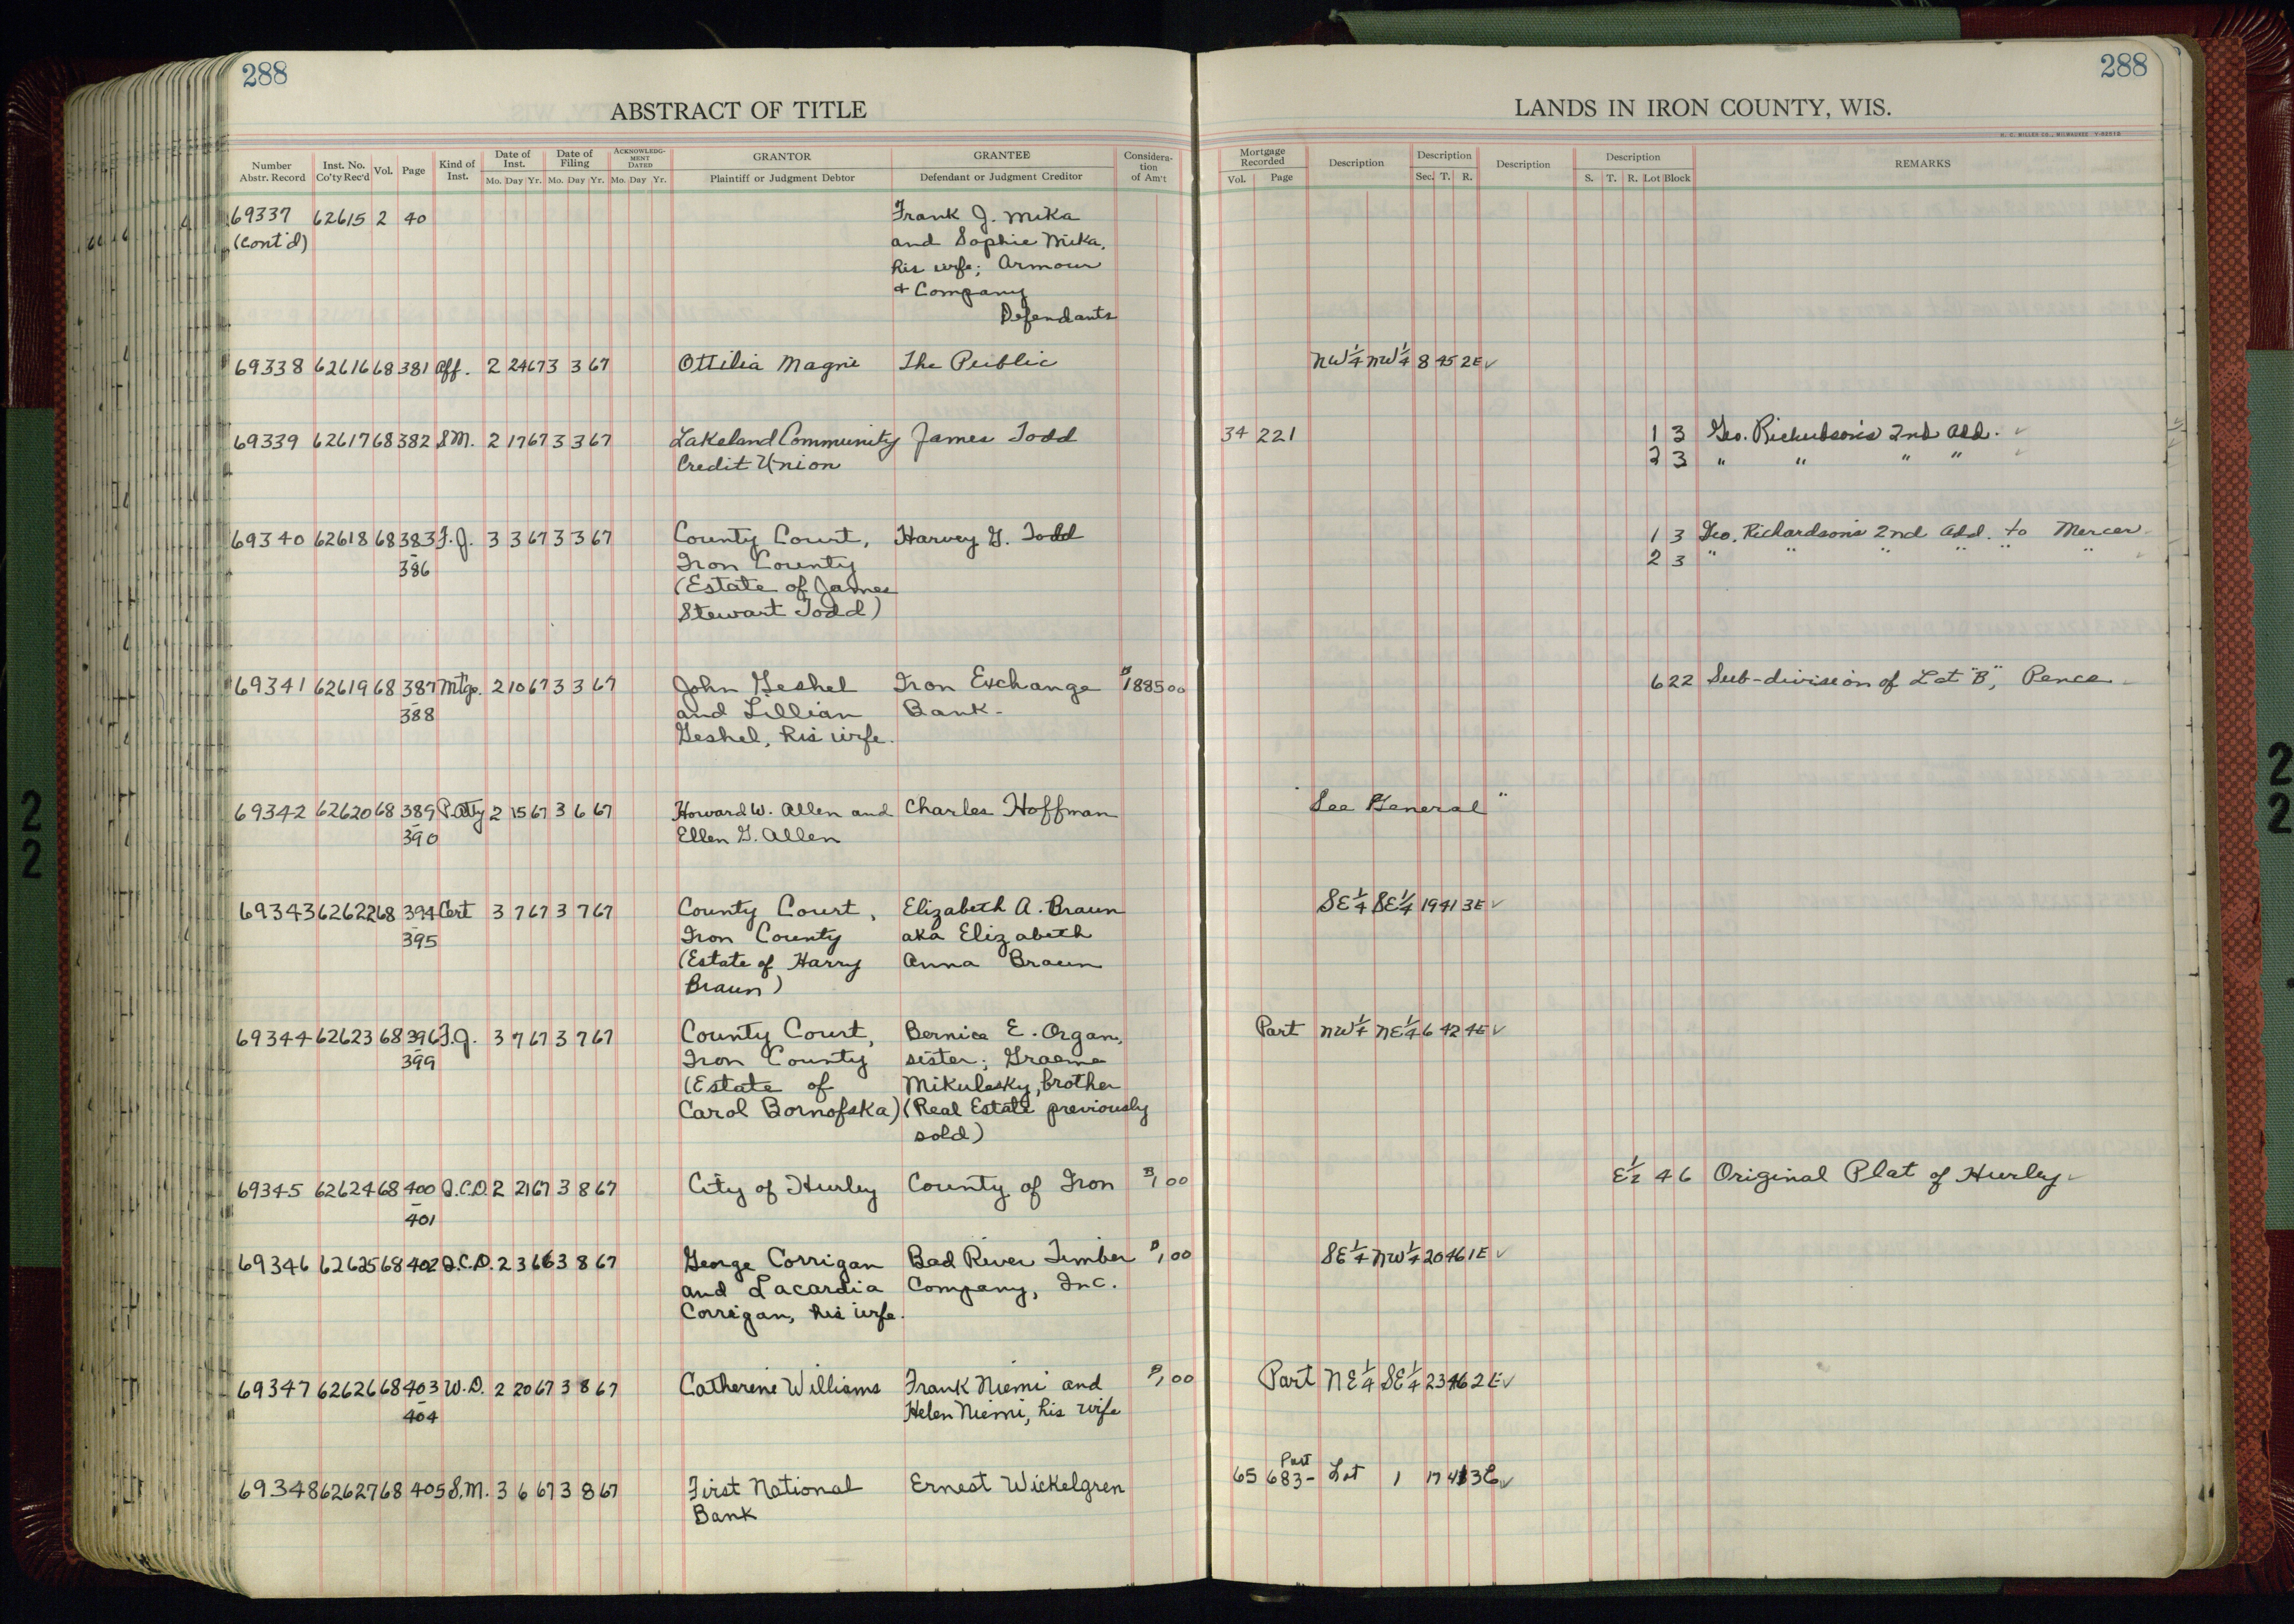 288
288
ABSTRACT OF TITLE
LANDS IN IRON COUNTY, WIS.
H. C. MILLER CO., MILWAUKEE
Number Abstr. Record Inst. No. Co'ty Rec'd Vol. Page Kind of Inst. Date of Inst. Mo. Day Yr. Date of Filing Mo. Day Yr. ACKNOWLEDGMENT DATED Mo. Day Yr. GRANTOR Plaintiff or Judgment Debtor GRANTEE Defendant or Judgment Creditor Consideration of Am't
Mortgage Recorded Vol. Page Description Description Sec. T. R. Description Description S. T. R. Lot Block REMARKS
69337 62615 2 40 Frank J. Mika
(Cont'd) and Sophie Mika,
his wife; Armour
+ Company
Defendants
69338 62616 68 381 Aff. 2 24 67 3 3 67 Ottilia Magni The Public NW 1/4 NW 1/4 8 45 2E ✓
69339 62617 68 382 S.M. 2 17 67 3 3 67 Lakeland Community James Todd 34 221 1 3 Geo. Richardson's 2nd Add. ✓
Credit Union 2 3 " " " " ✓
69340 62618 68 383 F.J. 3 3 67 3 3 67 County Court, Harvey G. Todd 1 3 Geo. Richardson's 2nd Add. to Mercer
386 Iron County 2 3 " " " " " "
(Estate of James
Stewart Todd)
69341 62619 68 387 Mtge. 2 10 67 3 3 67 John Geshel Iron Exchange $1885 00 6 22 Sub-division of Lot "B", Pence
388 and Lillian Bank
Geshel, his wife.
69342 62620 68 389 P.Atty 2 15 67 3 6 67 Howard W. Allen and Charles Hoffman "See General"
390 Ellen G. Allen
69343 62622 68 394 Cert 3 7 67 3 7 67 County Court, Elizabeth A. Braun SE 1/4 SE 1/4 19 41 3E ✓
395 Iron County aka Elizabeth
(Estate of Harry Anna Braun
Braun)
69344 62623 68 396 F.J. 3 7 67 3 7 67 County Court, Bernice E. Organ, Part NW 1/4 NE 1/4 6 42 4E ✓
399 Iron County sister; Graeme
(Estate of Mikulesky, brother
Carol Bornofska) (Real Estate previously
sold)
69345 62624 68 400 Q.C.D. 2 21 67 3 8 67 City of Hurley County of Iron $1 00 E 1/2 4 6 Original Plat of Hurley ✓
401
69346 62625 68 402 Q.C.D. 2 3 66 3 8 67 George Corrigan Bad River Timber $1 00 SE 1/4 NW 1/4 20 46 1E ✓
and Lacardia Company, Inc.
Corrigan, his wife.
69347 62626 68 403 W.D. 2 20 67 3 8 67 Catherine Williams Frank Niemi and $1 00 Part NE 1/4 SE 1/4 23 46 2E ✓
404 Helen Niemi, his wife
69348 62627 68 405 S.M. 3 6 67 3 8 67 First National Ernest Wickelgren 65 683 - Part Lot 1 17 41 3E ✓
Bank
22
22